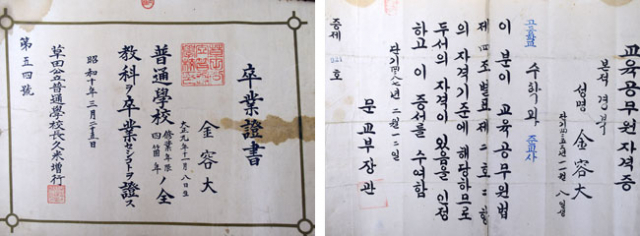 卒業證書
金容大
大正九年十一月八日生
普通學校
修業年限
四箇年
ノ全
教科ヲ卒業センコトヲ證ス
昭和十年三月二十五日
草田公立普通學校長久米增行
第五四號
교육공무원자격증
본적 경북
성명 金容大
수학과
이 분이 교육공무원법
제四조별표 제二호
의 자격기준에 해당하므로
두서의 자격이 있음을 인정
하고 이 증서를 수여함
문교부장관
증제
호